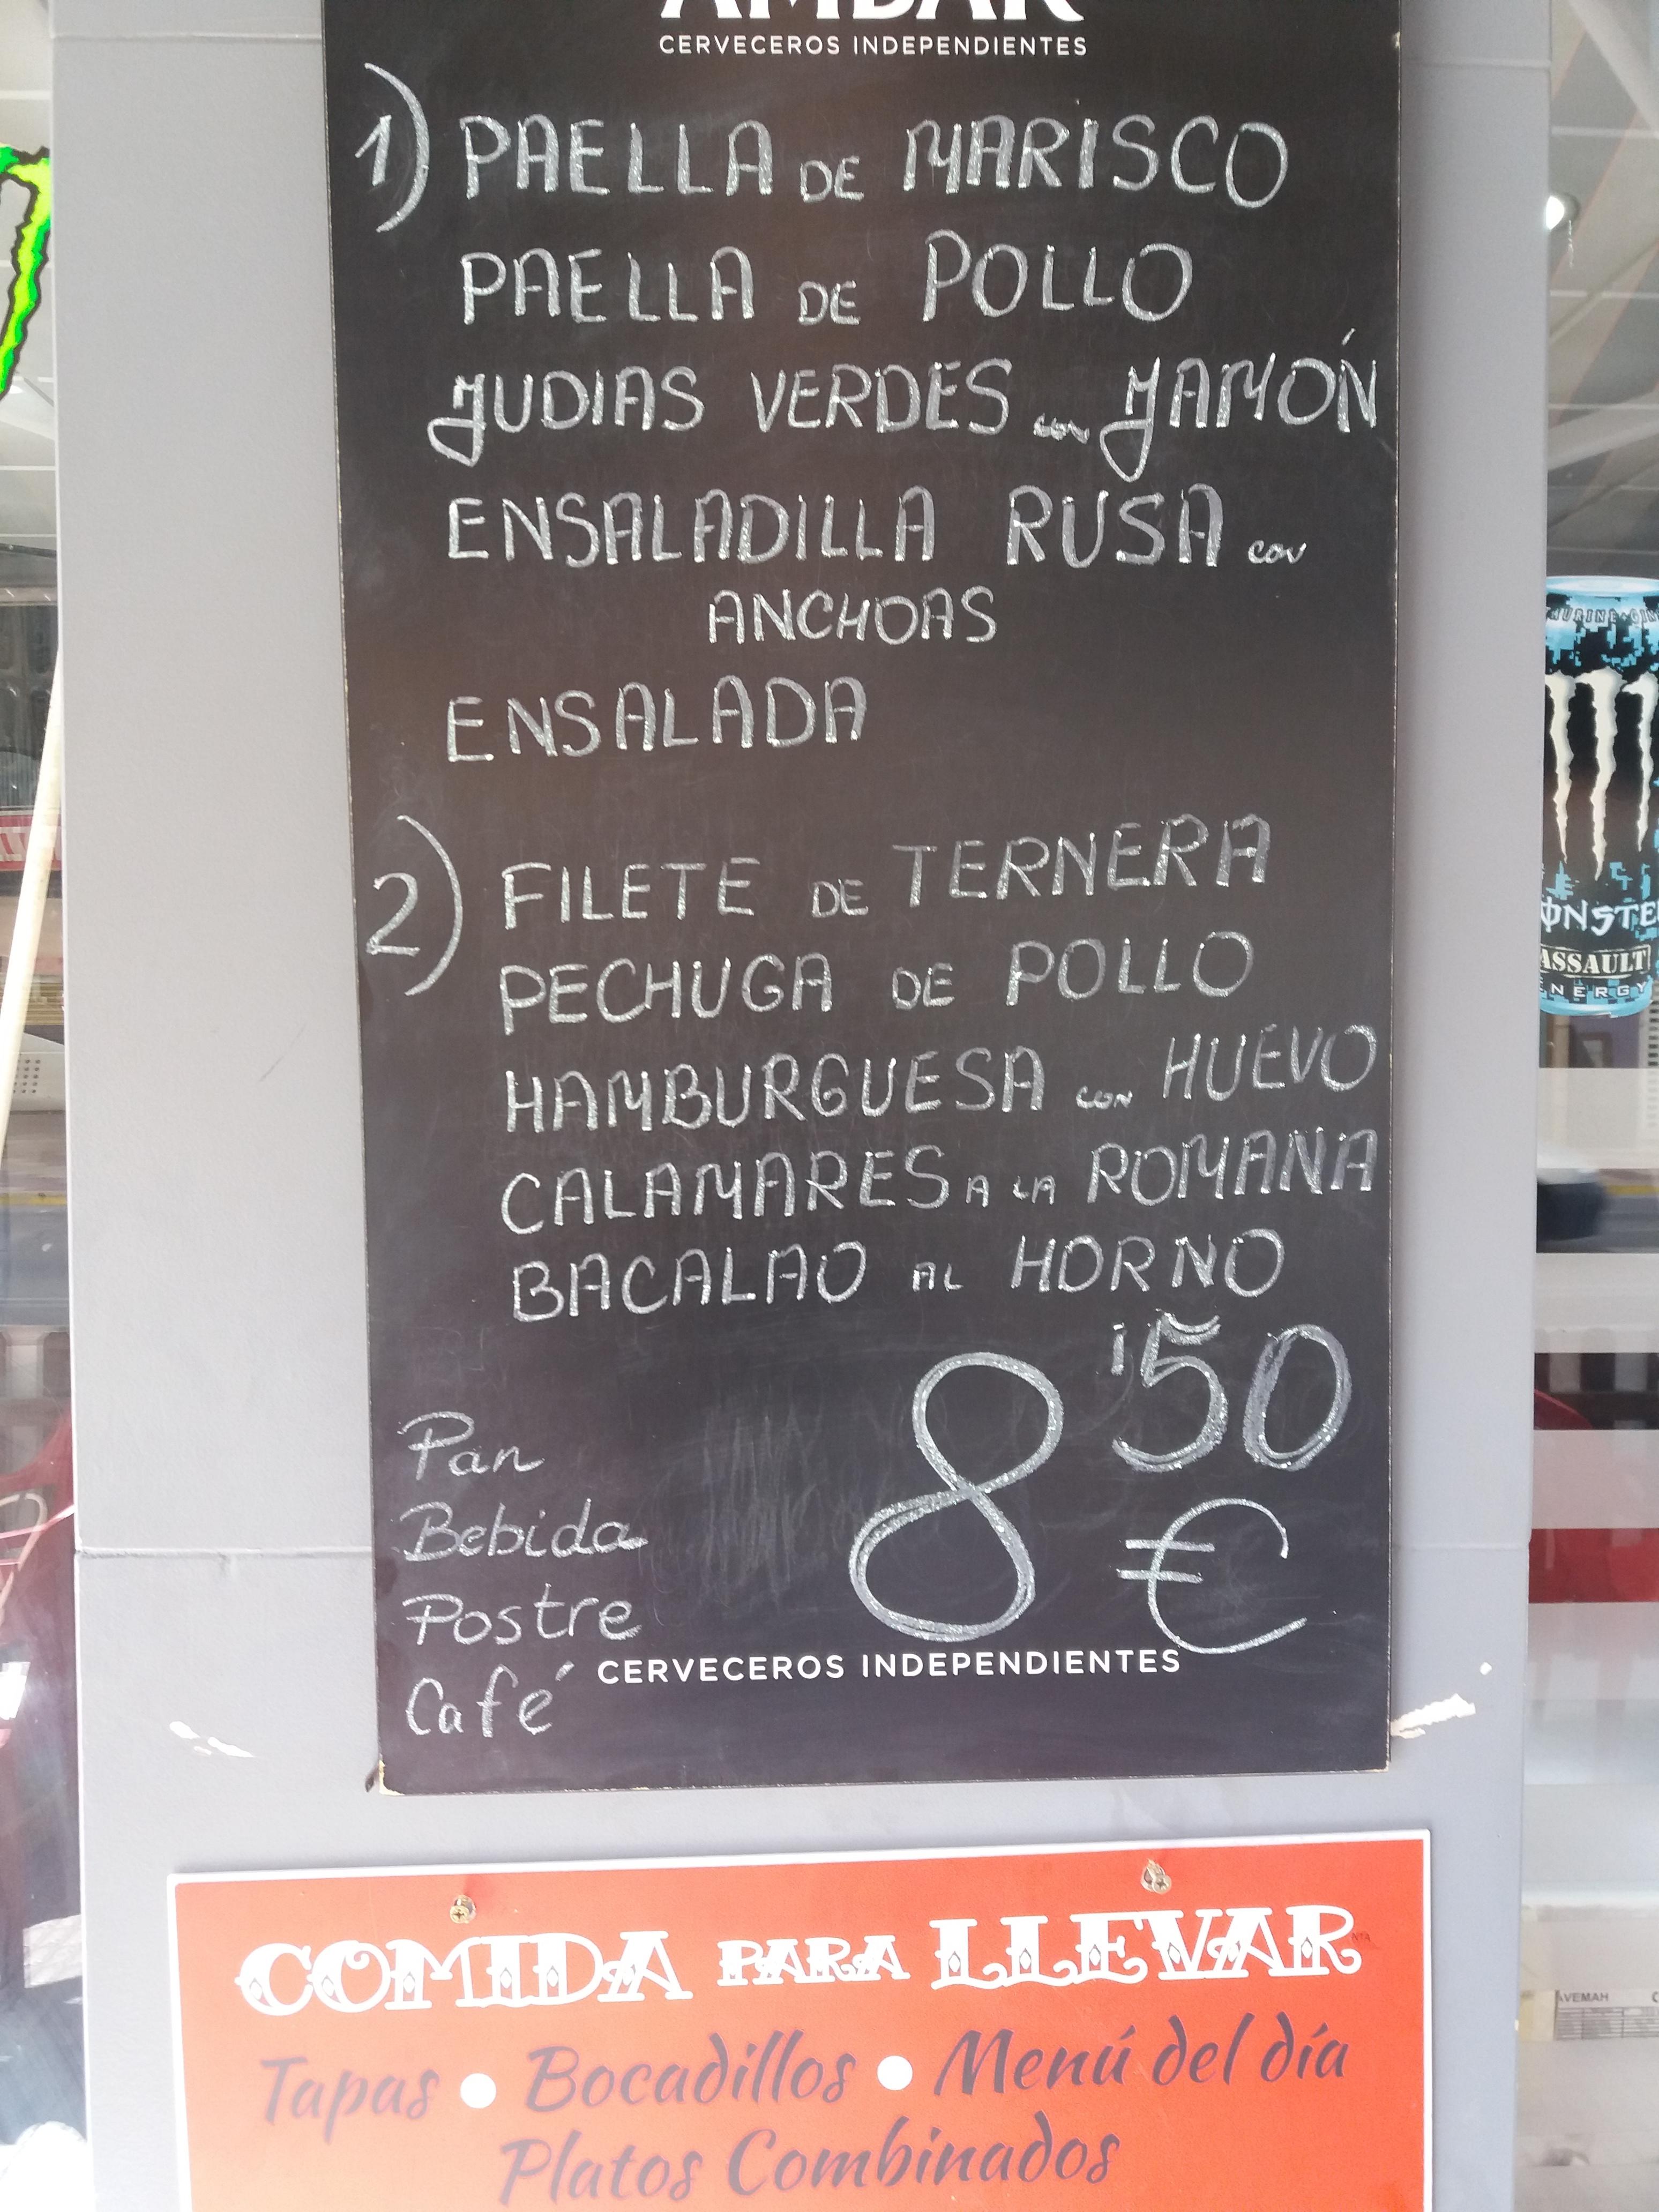 AMBAR
CERVECEROS INDEPENDIENTES
1) PAELLA DE MARISCO
PAELLA DE POLLO
JUDIAS VERDES con JAMÓN
ENSALADILLA RUSA con
ANCHOAS
ENSALADA
2) FILETE DE TERNERA
PECHUGA DE POLLO
HAMBURGUESA con HUEVO
CALAMARES A LA ROMANA
BACALAO AL HORNO
8'50
€
Pan
Bebida
Postre
Café
CERVECEROS INDEPENDIENTES
COMIDA PARA LLEVAR
Tapas • Bocadillos • Menú del día
Platos Combinados
ASSAULT
ENERGY